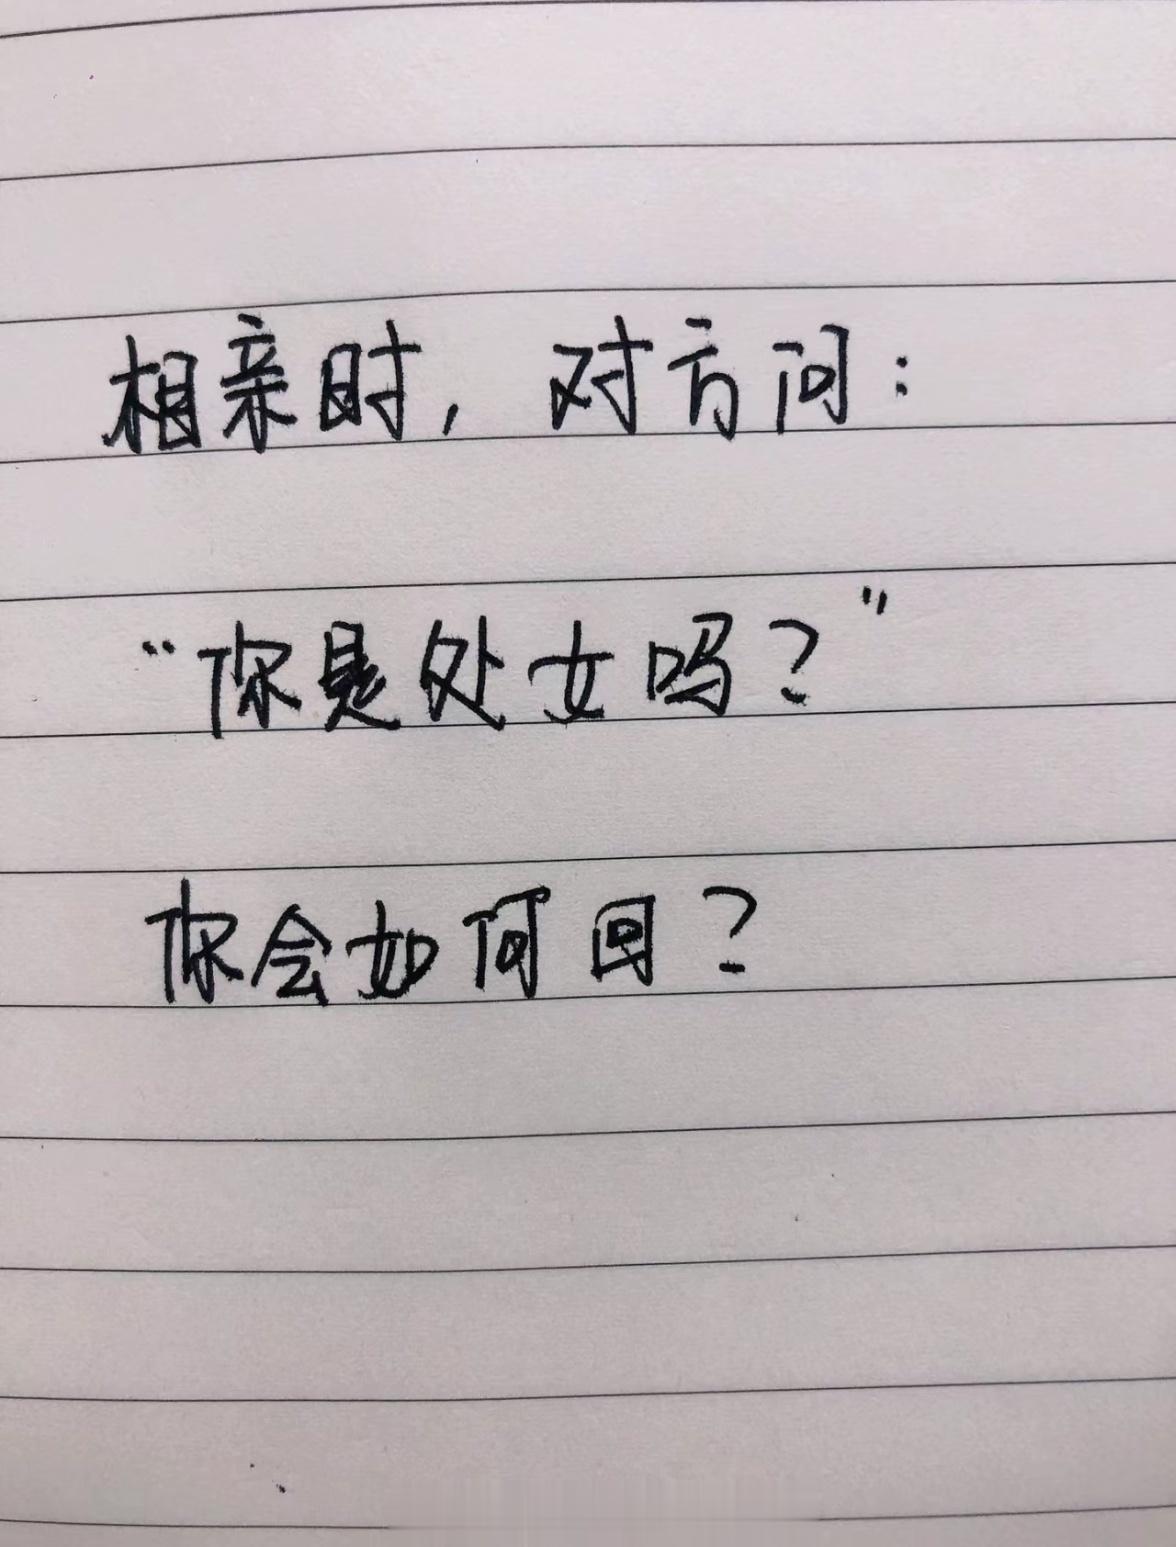 相亲时，对方问：
“你是处女吗？”
你会如何回？